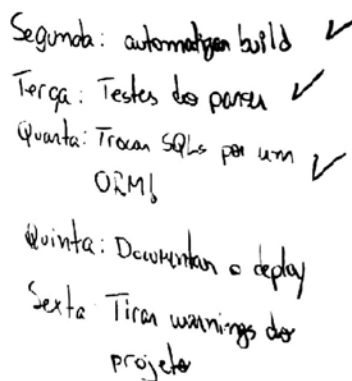 Segunda: automatizar build ✓
Terça: Testes do parser ✓
Quarta: Trocar SQLs por um ✓
ORM!
Quinta: Documentar o deploy
Sexta Tirar warnings do
projeto